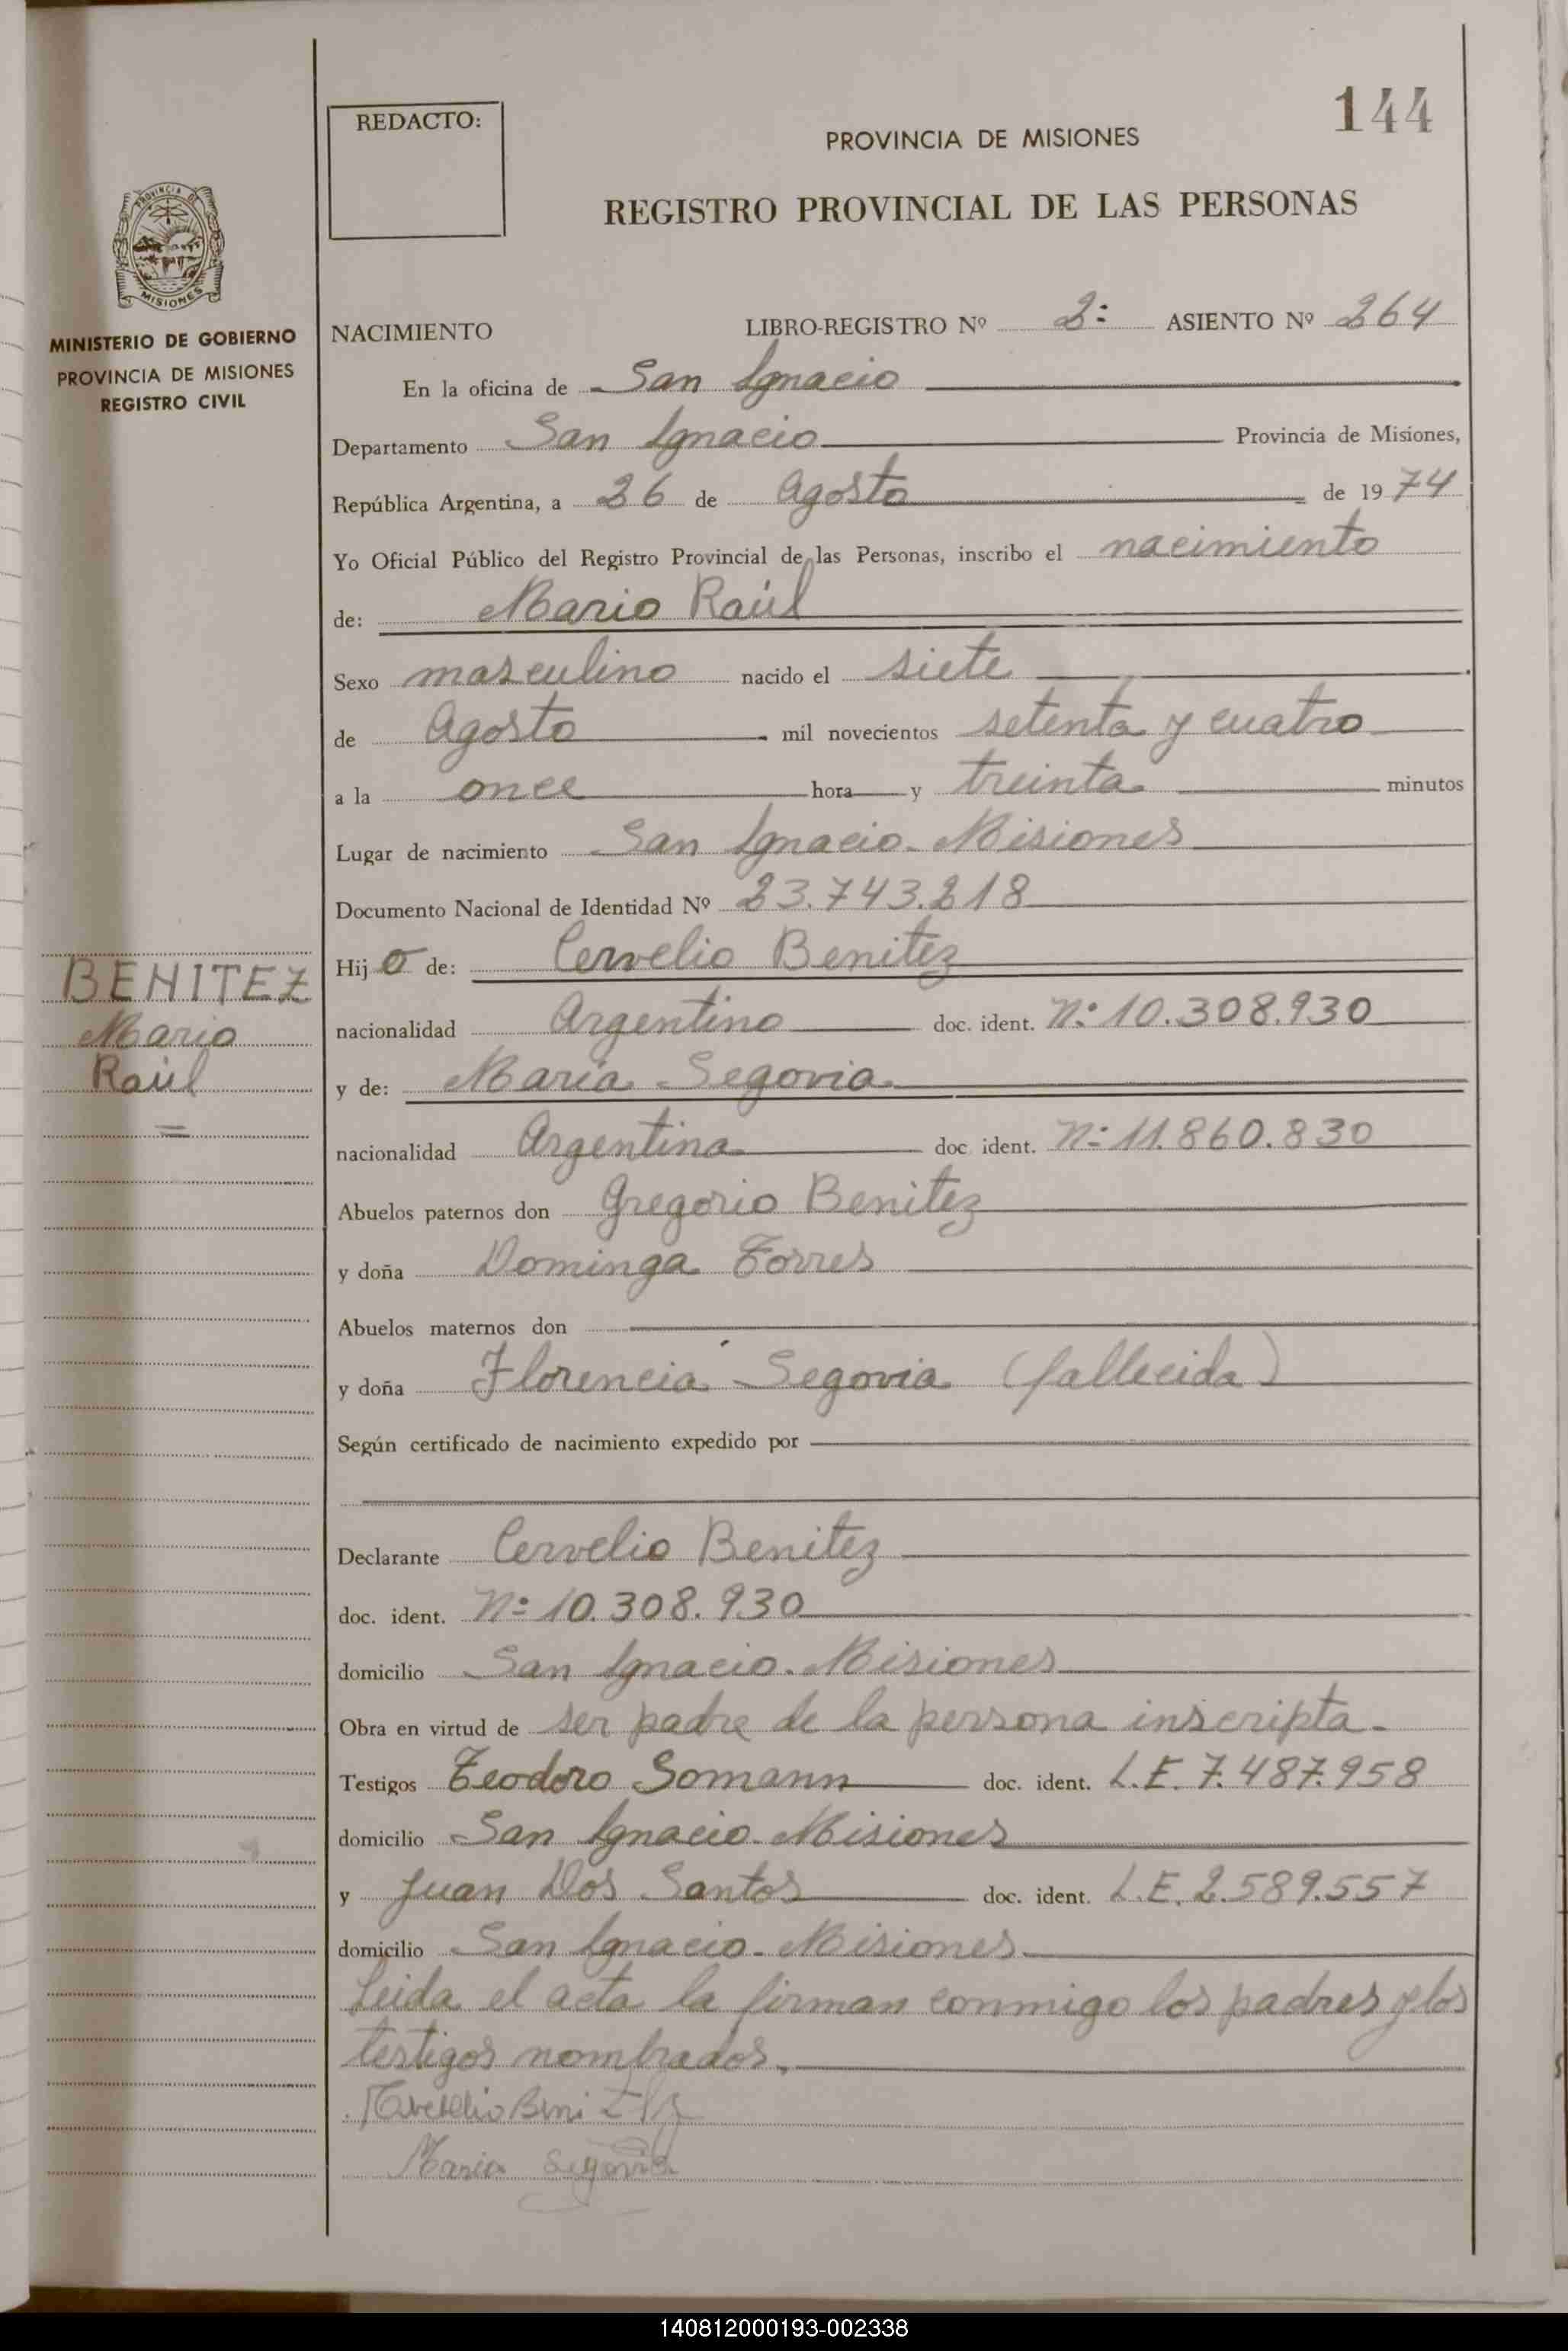 144
REDACTO:
PROVINCIA DE MISIONES
REGISTRO PROVINCIAL DE LAS PERSONAS
PROVINCIA DE
MISIONES
MINISTERIO DE GOBIERNO
PROVINCIA DE MISIONES
REGISTRO CIVIL
NACIMIENTO LIBRO-REGISTRO Nº 2: ASIENTO Nº 264
En la oficina de San Ignacio
Departamento San Ignacio Provincia de Misiones,
República Argentina, a 26 de Agosto de 1974
Yo Oficial Público del Registro Provincial de las Personas, inscribo el nacimiento
de: Mario Raúl
Sexo masculino nacido el siete
de Agosto mil novecientos setenta y cuatro
a la once hora y treinta minutos
Lugar de nacimiento San Ignacio - Misiones
Documento Nacional de Identidad Nº 23.743.218
BENITEZ
Mario
Raúl
Hijo de: Cervelio Benitez
nacionalidad Argentino doc. ident. Nº 10.308.930
y de: María Segovia
nacionalidad Argentina doc. ident. Nº 11.860.830
Abuelos paternos don Gregorio Benitez
y doña Dominga Torres
Abuelos maternos don
y doña Florencia Segovia (fallecida)
Según certificado de nacimiento expedido por
Declarante Cervelio Benitez
doc. ident. Nº 10.308.930
domicilio San Ignacio - Misiones
Obra en virtud de ser padre de la persona inscripta.
Testigos Teodoro Somann doc. ident. L.E. 7.487.958
domicilio San Ignacio - Misiones
y Juan Dos Santos doc. ident. L.E. 2.589.557
domicilio San Ignacio - Misiones
Leida el acta la firman conmigo los padres y los
testigos nombrados.
Maria Segovia
140812000193-002338